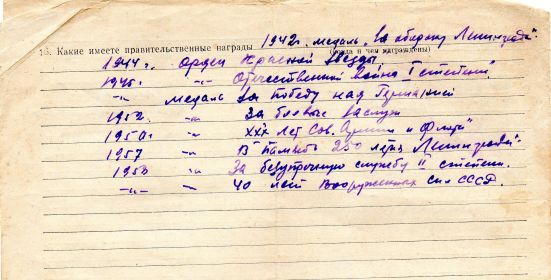 15. Какие имеете правительственные награды 1942г. медаль „За оборону Ленинграда"
(когда и чем награждены)
1944г. Орден Красной Звезды
1945г. Отечественной война I степени"
-"- медаль За победу над Германией
1952. -"- За боевые заслуги
1950г. -"- XXX лет Сов. Армии и Флота"
1957 -"- В память 250 летия Ленинграда"
1958 -"- За безупречную службу II степени.
-"- -"- 40 лет Вооруженных сил СССР.